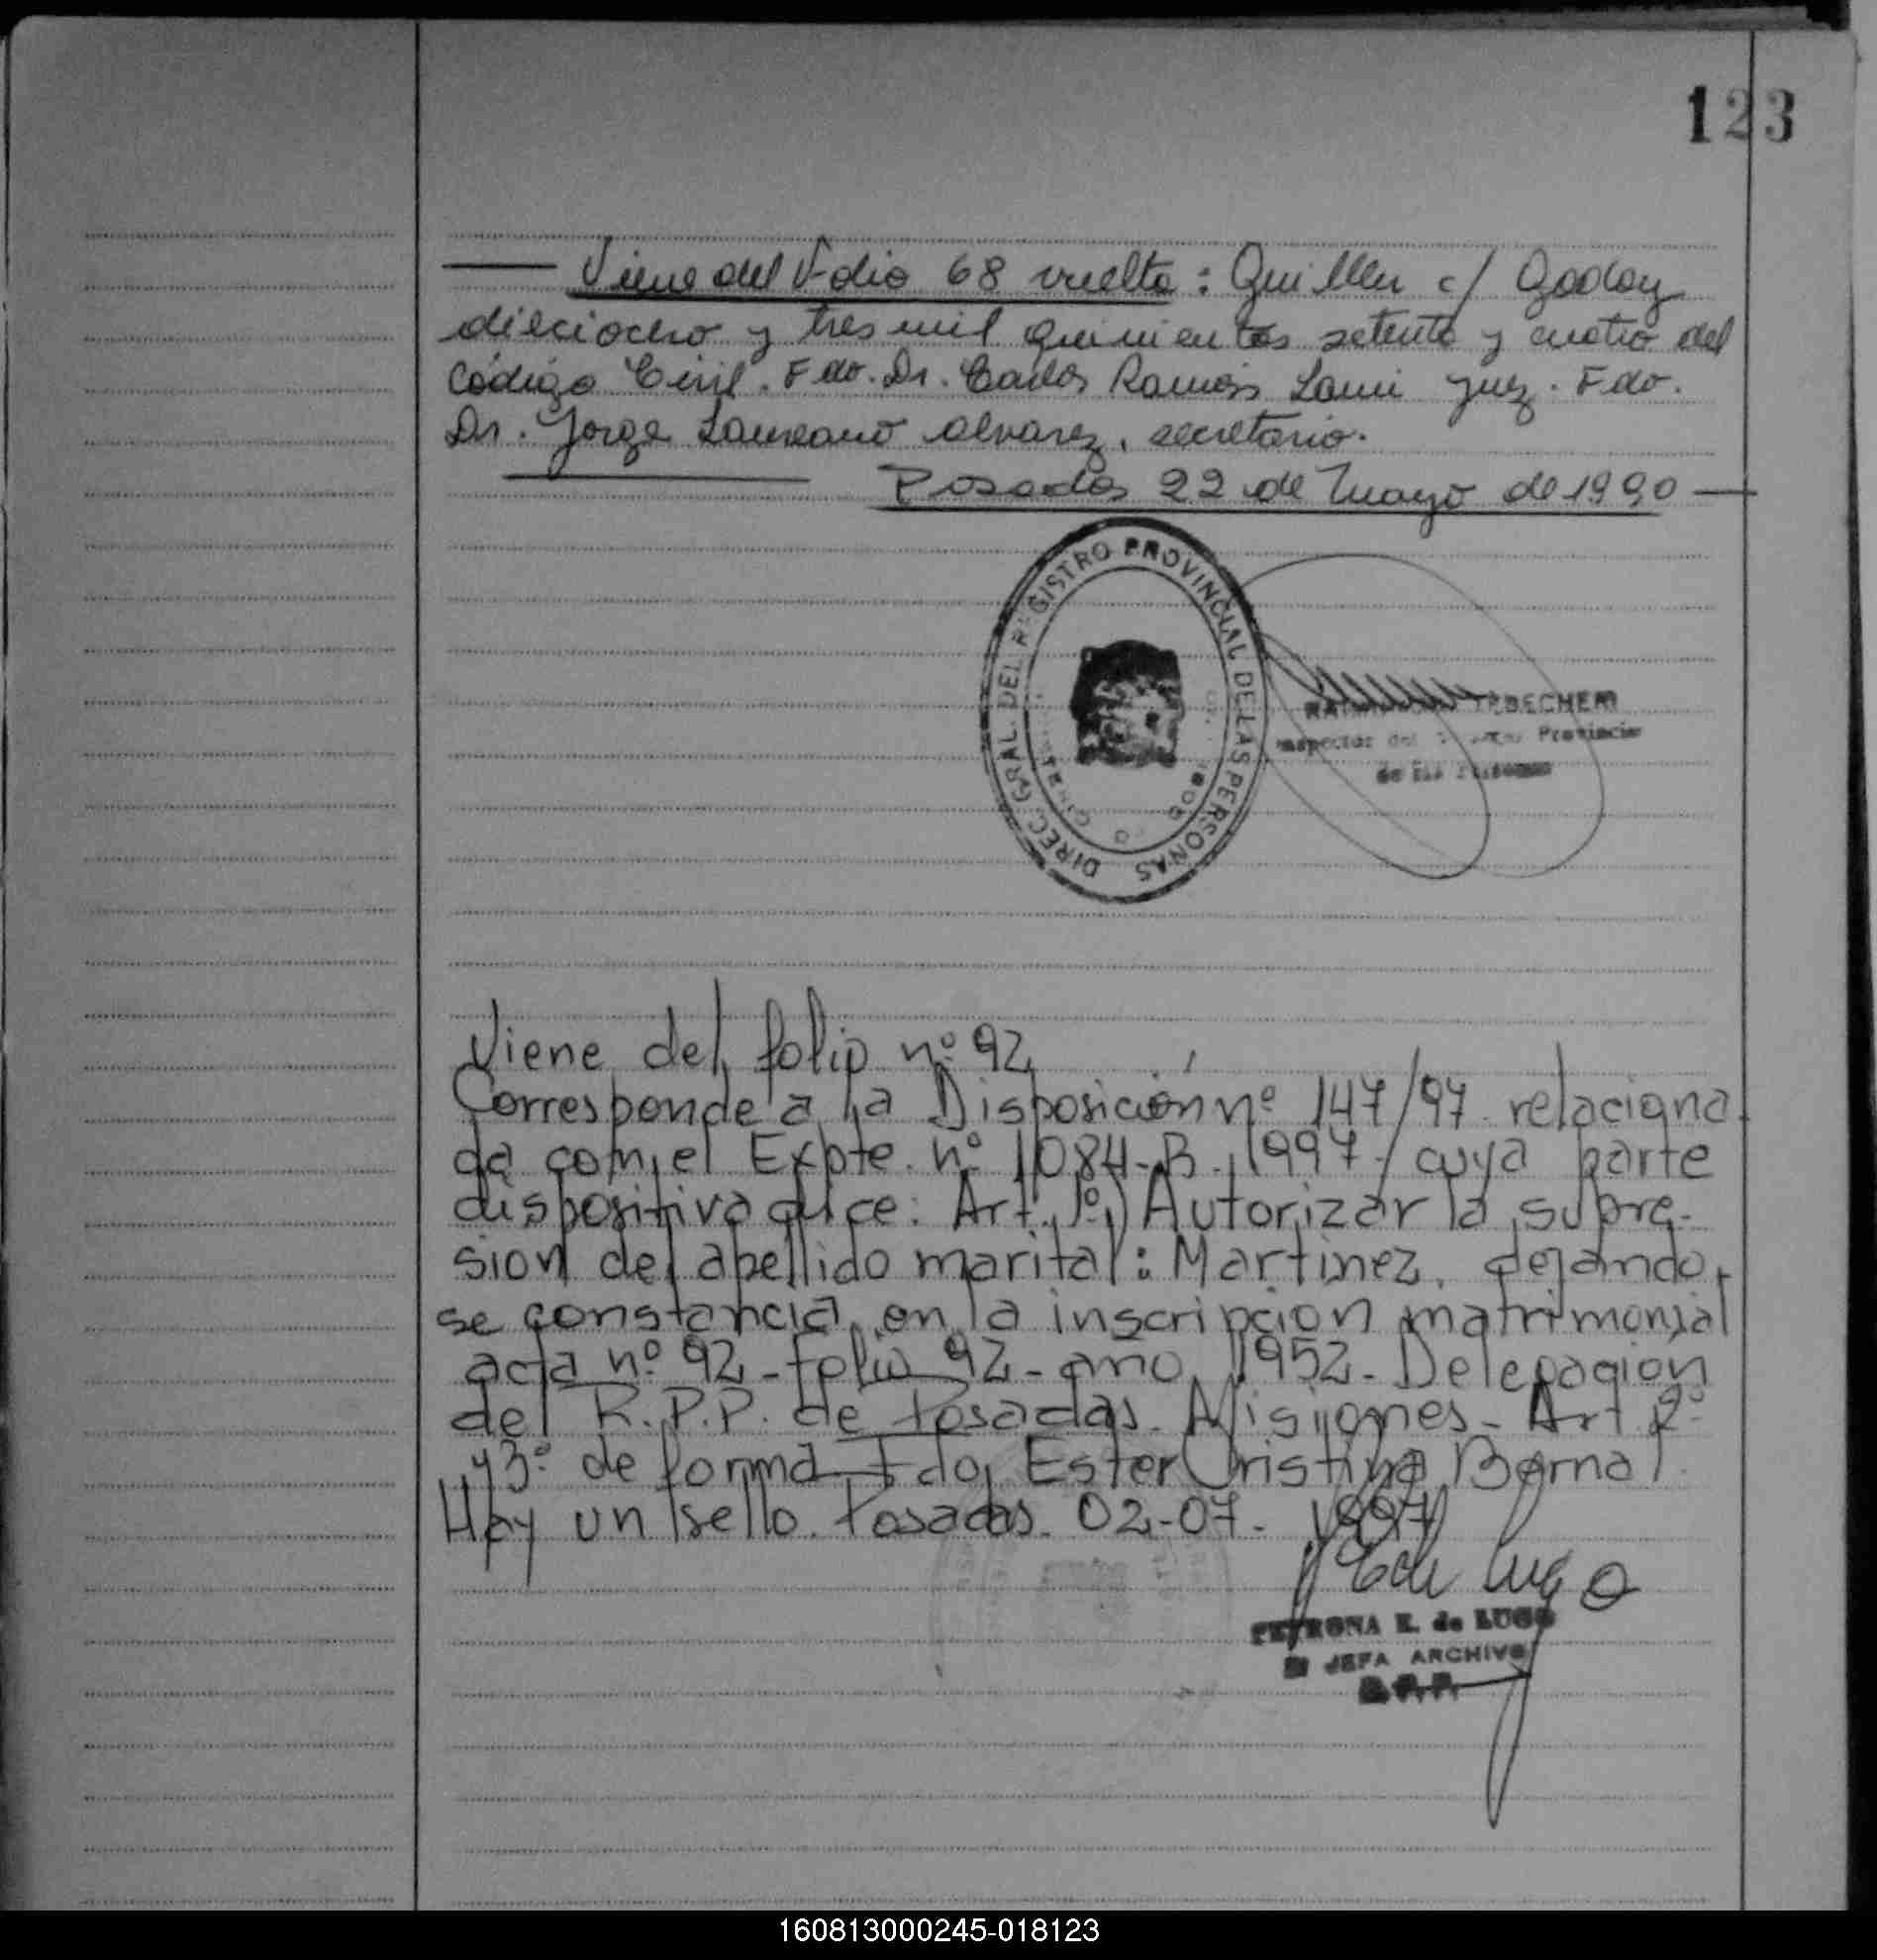 123
Viene del Folio 68 vuelta: Quiller c/ Godoy
dieciocho y tres mil quinientos setenta y cuatro del
Código Civil. Fdo. Dr. Carlos Ramón Lami Juez. Fdo.
Dr. Jorge Laureano Alvarez, secretario.
Posadas 22 de Mayo de 1990
DIREC. GRAL. DEL REGISTRO PROVINCIAL DE LAS PERSONAS
TEBECHERI
Inspector del Provincial
de las Personas
Viene del folio nº 92
Corresponde a la Disposición nº 147/97 relaciona
da com el Expte. nº 1084-B-1997/ cuya parte
dispositiva dice: Art. 1º) Autorizar la supre-
sion del apellido marital: Martinez, dejando
se constancia en la inscripcion matrimonial
acta nº 92 - folio 92 - año 1952 - Delegación
del R.P.P. de Posadas. Misiones - Art 2º
y 3º de forma Fdo, Ester Cristina Bernal.
Hay un sello. Posadas. 02-07-1997
PETRONA E. de LUGO
JEFA ARCHIVO
R.P.P.
160813000245-018123